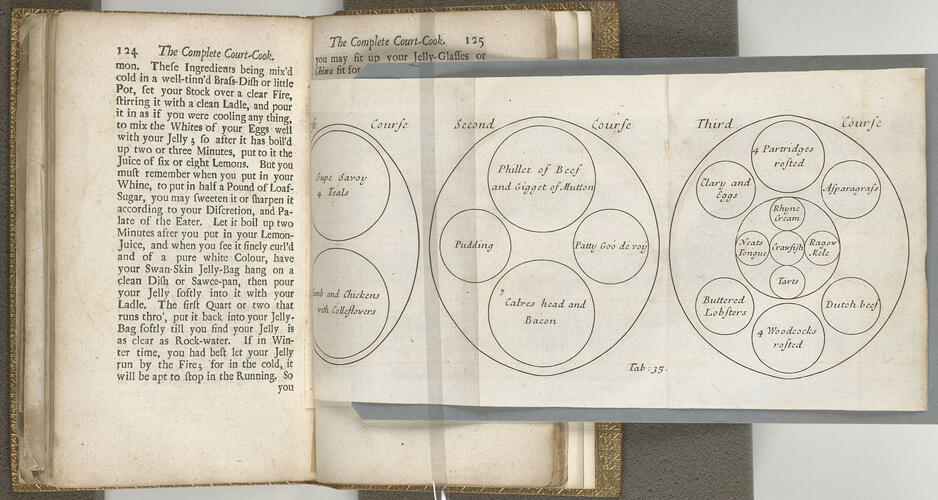 124 The Complete Court-Cook.
mon. Theſe Ingredients being mix'd
cold in a well-tinn'd Braſs-Diſh or little
Pot, ſet your Stock over a clear Fire,
ſtirring it with a clean Ladle, and pour
it in as if you were cooling any thing,
to mix the Whites of your Eggs well
with your Jelly; ſo after it has boil'd
up two or three Minutes, put to it the
Juice of ſix or eight Lemons. But you
muſt remember when you put in your
Whine, to put in half a Pound of Loaf-
Sugar, you may ſweeten it or ſharpen it
according to your Diſcretion, and Pa-
late of the Eater. Let it boil up two
Minutes after you put in your Lemon-
Juice, and when you ſee it finely curl'd
and of a pure white Colour, have
your Swan-Skin Jelly-Bag hang on a
clean Diſh or Sawce-pan, then pour
your Jelly ſoftly into it with your
Ladle. The firſt Quart or two that
runs thro', put it back into your Jelly-
Bag ſoftly till you find your Jelly is
as clear as Rock-water. If in Win-
ter time, you had beſt let your Jelly
run by the Fire; for in the cold, it
will be apt to ſtop in the Running. So
you
The Complete Court-Cook. 125
you may fit up your Jelly-Glaſſes or
China fit for
Courſe
Supe Savoy
4 Teals
and Chickens
with Colleflovers
Second Courſe
Phillet of Beef
and Gigget of Mutton
Pudding
Patty Goo de voy
Calves head and
Bacon
Tab: 35.
Third Courſe
4 Partridges
roſted
Clary and
Eggs
Aſparagraſs
Rhyne
Cream
Neats
Tongue
Crawfiſh
Ragow
Mele
Tarts
Buttered
Lobſters
Dutch beef
4 Woodcocks
roſted